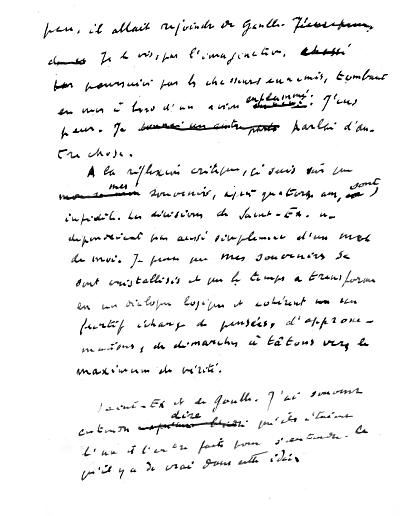 peu, il allait rejoindre de Gaulle.
Je le vis, par l'imagination,
poursuivi par les chasseurs ennemis, tombant
en mer à bord d'un avion enflammé. J'eus
peur. Je parlai d'au-
tre chose.
A la réflexion critique, je suis sûr que
mes souvenirs, après quatorze ans, sont
infidèles. Les décisions de Saint-Ex. ne
dépendaient pas aussi simplement d'un mot
de moi. Je pense que mes souvenirs se
sont cristallisés et que le temps a transformé
en un dialogue logique et cohérent un
furtif échange de pensées, d'approxi-
mations, de démarches à tâtons vers le
maximum de vérité.
Saint-Ex et de Gaulle. J'ai souvent
entendu dire qu'ils étaient
l'un et l'autre faits pour s'entendre. Ce
qu'il y a de vrai dans cette idée,